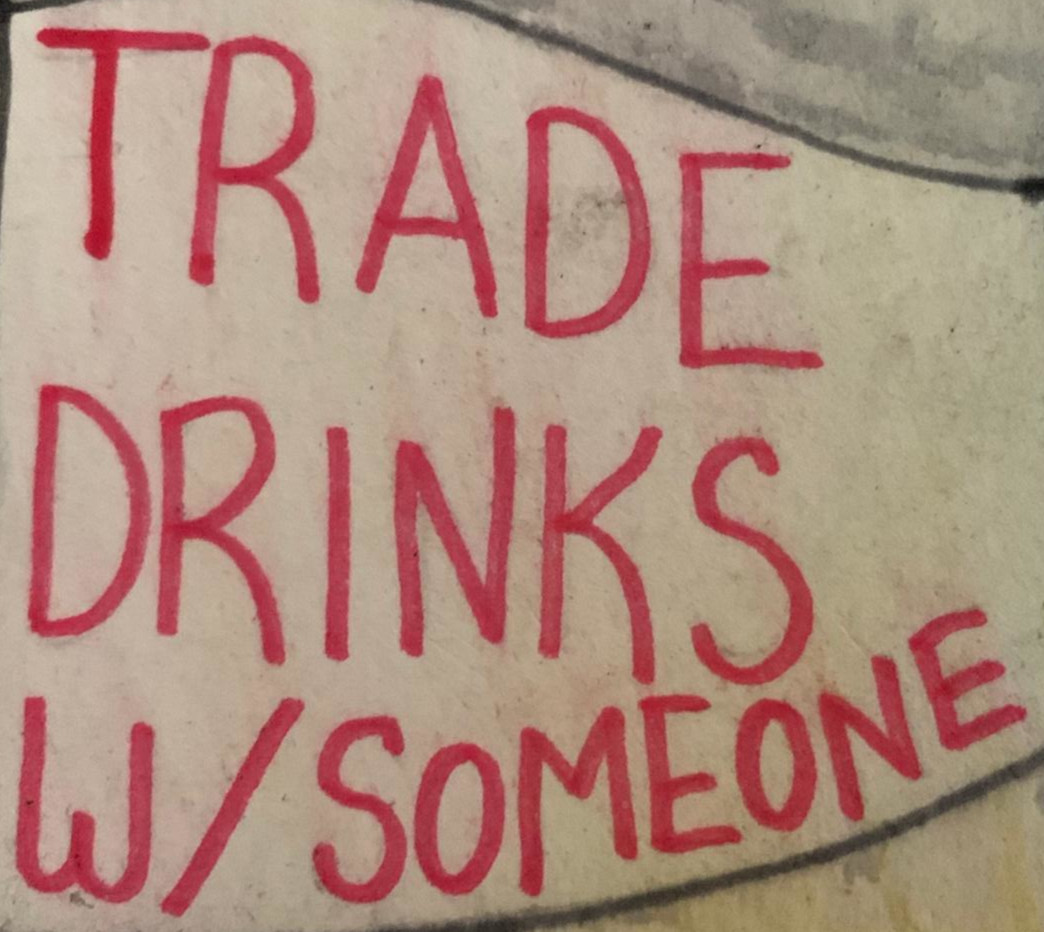 TRADE
DRINKS
W/SOMEONE